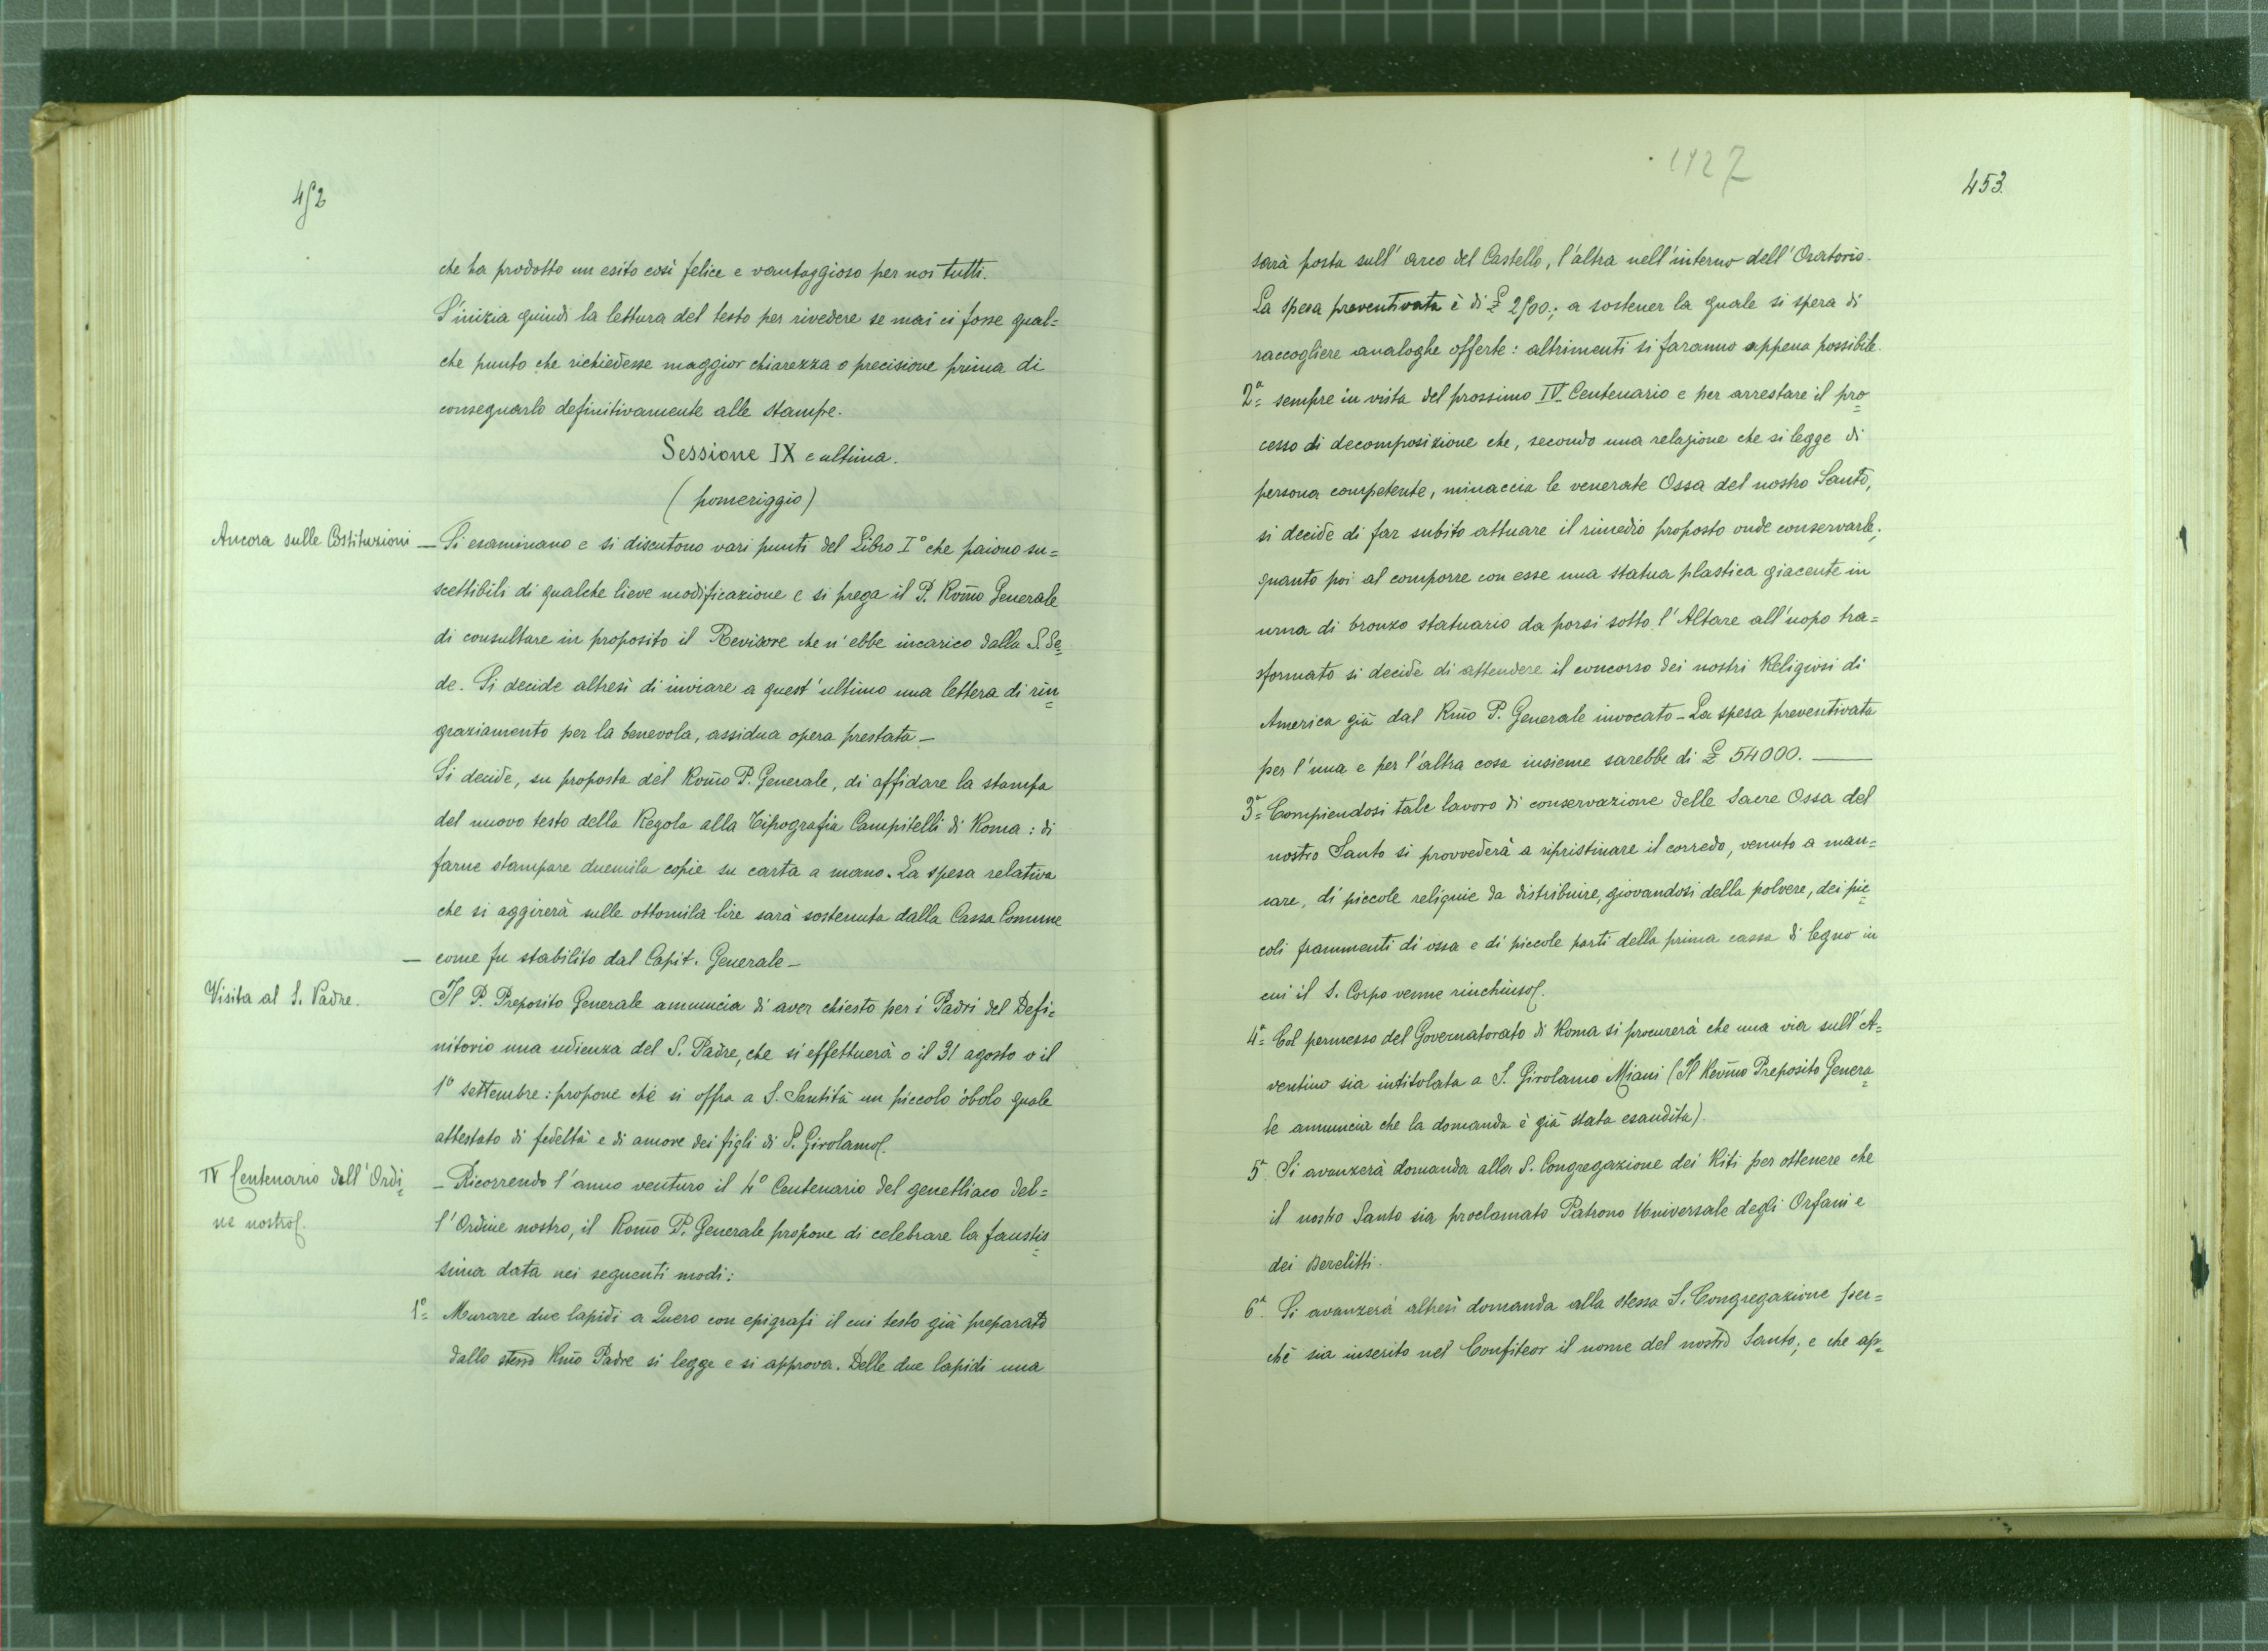 452
che ha prodotto un esito così felice e vantaggioso per noi tutti.
S'inizia quindi la lettura del testo per rivedere se mai ci fosse qual=
che punto che richiedesse maggior chiarezza o precisione prima di
consegnarlo definitivamente alle stampe.
Sessione IX e ultima.
(pomeriggio)
Ancora sulle Costituzioni
— Si esaminano e si discutono vari punti del Libro I° che paiono su=
scettibili di qualche lieve modificazione e si prega il P. Rom̃o Generale
di consultare in proposito il Revisore che n'ebbe incarico dalla S. Se=
de. Si decide altresì di inviare a quest'ultimo una lettera di rin=
graziamento per la benevola, assidua opera prestata —
Si decide, su proposta del Rom̃o P. Generale, di affidare la stampa
del nuovo testo della Regola alla Tipografia Campitelli di Roma: di
farne stampare duemila copie su carta a mano. La spesa relativa
che si aggirerà sulle ottomila lire sarà sostenuta dalla Cassa Comune
— come fu stabilito dal Capit. Generale —
Visita al S. Padre.
Il P. Preposito Generale annuncia di aver chiesto per i Padri del Defi=
nitorio una udienza del S. Padre, che si effettuerà o il 31 agosto o il
1° settembre: propone che si offra a S. Santità un piccolo òbolo quale
attestato di fedeltà e di amore dei figli di S. Girolamo.
IV Centenario dell'Ordi=
ne nostro.
— Ricorrendo l'anno venturo il 4° Centenario del genetliaco del=
l'Ordine nostro, il Rom̃o P. Generale propone di celebrare la faustis=
sima data nei seguenti modi:
1°= Murare due lapidi a Quero con epigrafi il cui testo già preparato
dallo stesso Rm̃o Padre si legge e si approva. Delle due lapidi una
1927
453.
sarà posta sull'arco del Castello, l'altra nell'interno dell'Oratorio.
La spesa preventivata è di £ 2500.; a sostener la quale si spera di
raccogliere analoghe offerte: altrimenti si faranno appena possibile.
2ª= sempre in vista del prossimo IV Centenario e per arrestare il pro=
cesso di decomposizione che, secondo una relazione che si legge di
persona competente, minaccia le venerate Ossa del nostro Santo,
si decide di far subito attuare il rimedio proposto onde conservarle;
quanto poi al comporre con esse una statua plastica giacente in
urna di bronzo statuario da porsi sotto l'Altare all'uopo tra=
sformato si decide di attendere il concorso dei nostri Religiosi di
America già dal Rm̃o P. Generale invocato — La spesa preventivata
per l'una e per l'altra cosa insieme sarebbe di £ 54000. —
3ª= Compiendosi tale lavoro di conservazione delle Sacre Ossa del
nostro Santo si provvederà a ripristinare il corredo, venuto a man=
care, di piccole reliquie da distribuire, giovandosi della polvere, dei pic=
coli frammenti di ossa e di piccole parti della prima cassa di legno in
cui il S. Corpo venne rinchiuso.
4ª= Col permesso del Governatorato di Roma si procurerà che una via sull'A=
ventino sia intitolata a S. Girolamo Miani (Il Revm̃o Preposito Genera=
le annuncia che la domanda è già stata esaudita).
5ª. Si avanzerà domanda alla S. Congregazione dei Riti per ottenere che
il nostro Santo sia proclamato Patrono Universale degli Orfani e
dei Derelitti.
6ª. Si avanzerà altresì domanda alla stessa S. Congregazione per=
chè sia inserito nel Confiteor il nome del nostro Santo; e che ap=